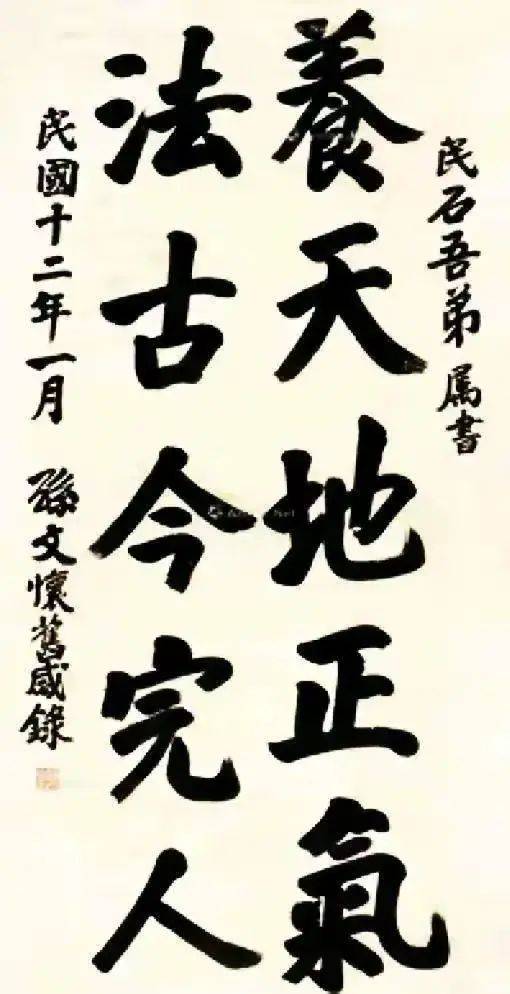 民石吾弟 属書
養天地正氣
法古今完人
民國十二年一月 孫文懷舊感錄